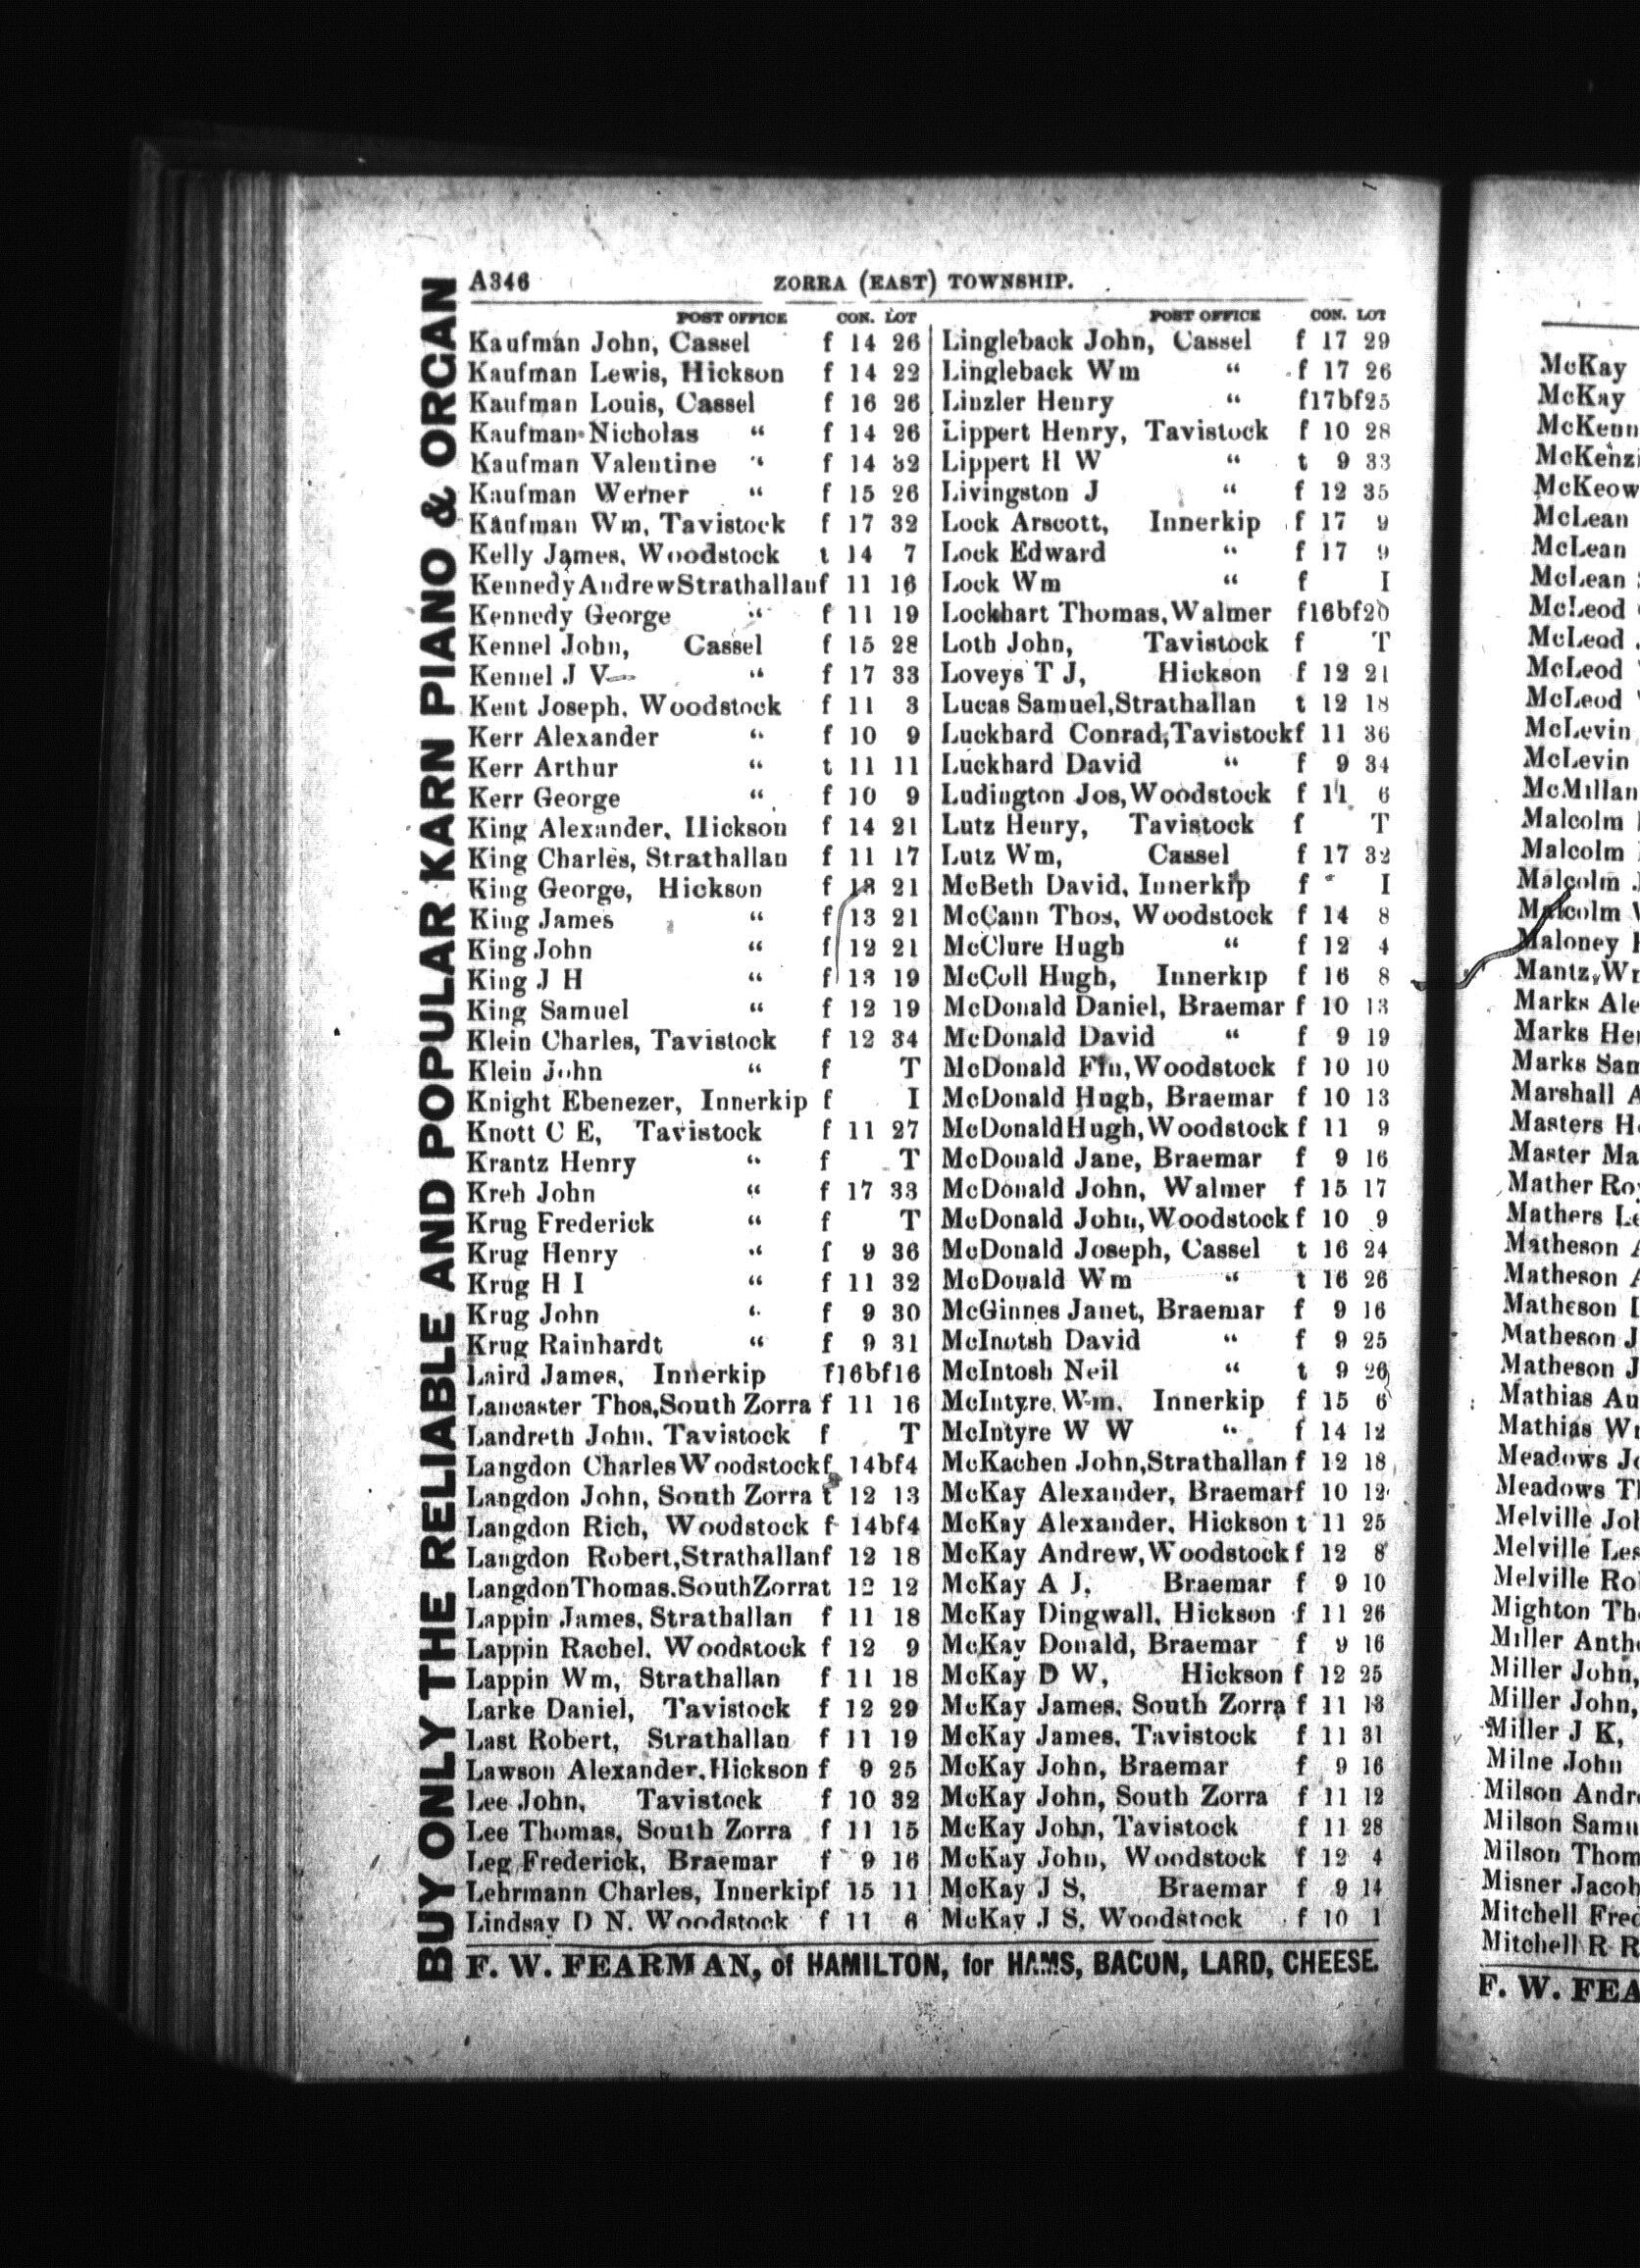 A346
ZORRA (EAST) TOWNSHIP.
BUY ONLY THE RELIABLE AND POPULAR KARN PIANO & ORGAN
POST OFFICE CON. LOT
Kaufman John, Cassel f 14 26
Kaufman Lewis, Hickson f 14 22
Kaufman Louis, Cassel f 16 26
Kaufman Nicholas “ f 14 26
Kaufman Valentine “ f 14 32
Kaufman Werner “ f 15 26
Kaufman Wm, Tavistock f 17 32
Kelly James, Woodstock t 14 7
Kennedy Andrew Strathallan f 11 16
Kennedy George “ f 11 19
Kennel John, Cassel f 15 28
Kennel J V “ f 17 33
Kent Joseph, Woodstock f 11 3
Kerr Alexander “ f 10 9
Kerr Arthur “ t 11 11
Kerr George “ f 10 9
King Alexander, Hickson f 14 21
King Charles, Strathallan f 11 17
King George, Hickson f 13 21
King James “ f 13 21
King John “ f 12 21
King J H “ f 13 19
King Samuel “ f 12 19
Klein Charles, Tavistock f 12 34
Klein John “ f T
Knight Ebenezer, Innerkip f I
Knott C E, Tavistock f 11 27
Krantz Henry “ f T
Kreh John “ f 17 33
Krug Frederick “ f T
Krug Henry “ f 9 36
Krug H I “ f 11 32
Krug John “ f 9 30
Krug Rainhardt “ f 9 31
Laird James, Innerkip f16bf16
Lancaster Thos, South Zorra f 11 16
Landreth John, Tavistock f T
Langdon Charles Woodstock f 14bf4
Langdon John, South Zorra t 12 13
Langdon Rich, Woodstock f 14bf4
Langdon Robert, Strathallan f 12 18
Langdon Thomas, South Zorra t 12 12
Lappin James, Strathallan f 11 18
Lappin Rachel, Woodstock f 12 9
Lappin Wm, Strathallan f 11 18
Larke Daniel, Tavistock f 12 29
Last Robert, Strathallan f 11 19
Lawson Alexander, Hickson f 9 25
Lee John, Tavistock f 10 32
Lee Thomas, South Zorra f 11 15
Leg Frederick, Braemar f 9 16
Lehrmann Charles, Innerkip f 15 11
Lindsay D N, Woodstock f 11 6
POST OFFICE CON. LOT
Lingleback John, Cassel f 17 29
Lingleback Wm “ f 17 26
Linzler Henry “ f17bf25
Lippert Henry, Tavistock f 10 28
Lippert H W “ t 9 33
Livingston J “ f 12 35
Lock Arscott, Innerkip f 17 9
Lock Edward “ f 17 9
Lock Wm “ f I
Lockhart Thomas, Walmer f16bf20
Loth John, Tavistock f T
Loveys T J, Hickson f 12 21
Lucas Samuel, Strathallan t 12 18
Luckhard Conrad, Tavistock f 11 36
Luckhard David “ f 9 34
Ludington Jos, Woodstock f 11 6
Lutz Henry, Tavistock f T
Lutz Wm, Cassel f 17 32
McBeth David, Innerkip f I
McCann Thos, Woodstock f 14 8
McClure Hugh “ f 12 4
McColl Hugh, Innerkip f 16 8
McDonald Daniel, Braemar f 10 13
McDonald David “ f 9 19
McDonald Fin, Woodstock f 10 10
McDonald Hugh, Braemar f 10 13
McDonald Hugh, Woodstock f 11 9
McDonald Jane, Braemar f 9 16
McDonald John, Walmer f 15 17
McDonald John, Woodstock f 10 9
McDonald Joseph, Cassel t 16 24
McDonald Wm “ t 16 26
McGinnes Janet, Braemar f 9 16
McInotsh David “ f 9 25
McIntosh Neil “ t 9 26
McIntyre Wm, Innerkip f 15 6
McIntyre W W “ f 14 12
McKachen John, Strathallan f 12 18
McKay Alexander, Braemar f 10 12
McKay Alexander, Hickson t 11 25
McKay Andrew, Woodstock f 12 8
McKay A J, Braemar f 9 10
McKay Dingwall, Hickson f 11 26
McKay Donald, Braemar f 9 16
McKay D W, Hickson f 12 25
McKay James, South Zorra f 11 13
McKay James, Tavistock f 11 31
McKay John, Braemar f 9 16
McKay John, South Zorra f 11 12
McKay John, Tavistock f 11 28
McKay John, Woodstock f 12 4
McKay J S, Braemar f 9 14
McKay J S, Woodstock f 10 1
F. W. FEARMAN, of HAMILTON, for HAMS, BACON, LARD, CHEESE.
McKay
McKay
McKenn
McKenzi
McKeow
McLean
McLean
McLean
McLeod
McLeod
McLeod
McLeod
McLevin
McLevin
McMillan
Malcolm
Malcolm
Malcolm
Malcolm
Maloney
Mantz Wr
Marks Ale
Marks Her
Marks San
Marshall A
Masters H
Master Ma
Mather Ro
Mathers Le
Matheson
Matheson
Matheson
Matheson J
Matheson J
Mathias Au
Mathias W
Meadows Jo
Meadows T
Melville Jo
Melville Les
Melville Ro
Mighton Th
Miller Anth
Miller John,
Miller John,
Miller J K,
Milne John
Milson Andr
Milson Samu
Milson Thom
Misner Jacob
Mitchell Fred
Mitchell R R
F. W. FEA